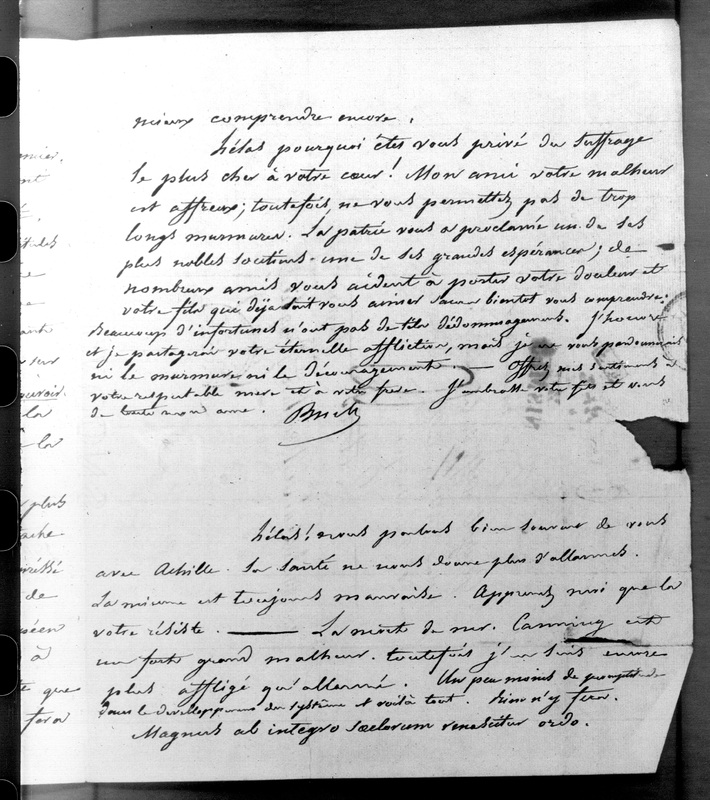 mieux comprendre encore.
hélas pourquoi êtes vous privé du suffrage
le plus cher à votre cœur! Mon ami votre malheur
est affreux; toutefois, ne vous permettez pas de trop
longs murmures. La patrie vous a proclamé un de ses
plus nobles soutiens - une de ses grandes espérances; de
nombreux amis vous aident à porter votre douleur et
votre fils qui déjà sait vous aimer saura bientot vous comprendre.
Beaucoup d'infortunes n'ont pas de tels dédommagemens. J'honore
et je partagerai votre éternelle affliction, mais je ne vous pardonnerais
ni le murmure ni le découragement. — Offrez mes sentimens à
votre respectable mere et à votre frere. J'embrasse votre fils et vous
de toute mon ame.
hélas! nous parlons bien souvent de vous
avec Achille. Sa santé ne nous donne plus d'allarmes.
La mienne est toujours mauvaise. Apprenez moi que la
votre résiste. — La mort de mr. Canning est
un forte grand malheur. toutefois j'en suis encore
plus affligé qu'allarmé. Un peu moins de promptitude
dans le developpement du système et voilà tout. Rien n'y fera.
Magnus ab integro sæclorum renascitur ordo.
mier.
nt
ouvoir.
la
la
plus
de
péen
à
te que
fera